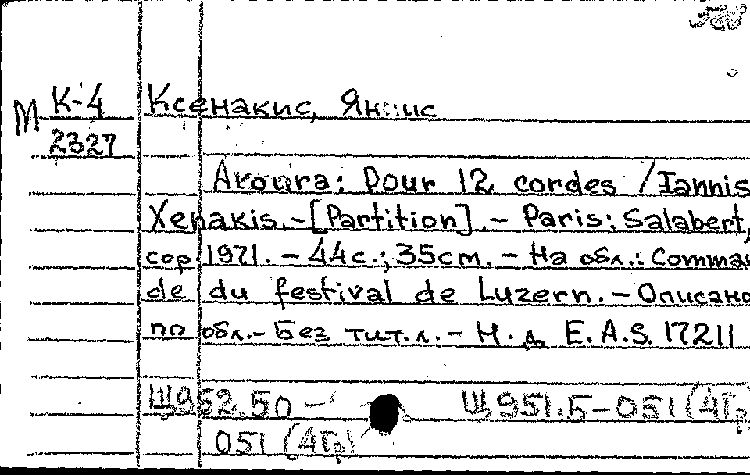 М К-4 Ксенакис, Яннис
2327
Aroura: Pour 12 cordes / Iannis
Xenakis. - [Partition]. - Paris: Salabert,
cop 1971. - 44с.; 35см. - На обл.: Comman
de du festival de Luzern. - Описано
по обл. - Без тит. л. - Н. д. E.A.S. 17211
Щ952.50 - Щ951.5-051(4Гр
051(4Гр)